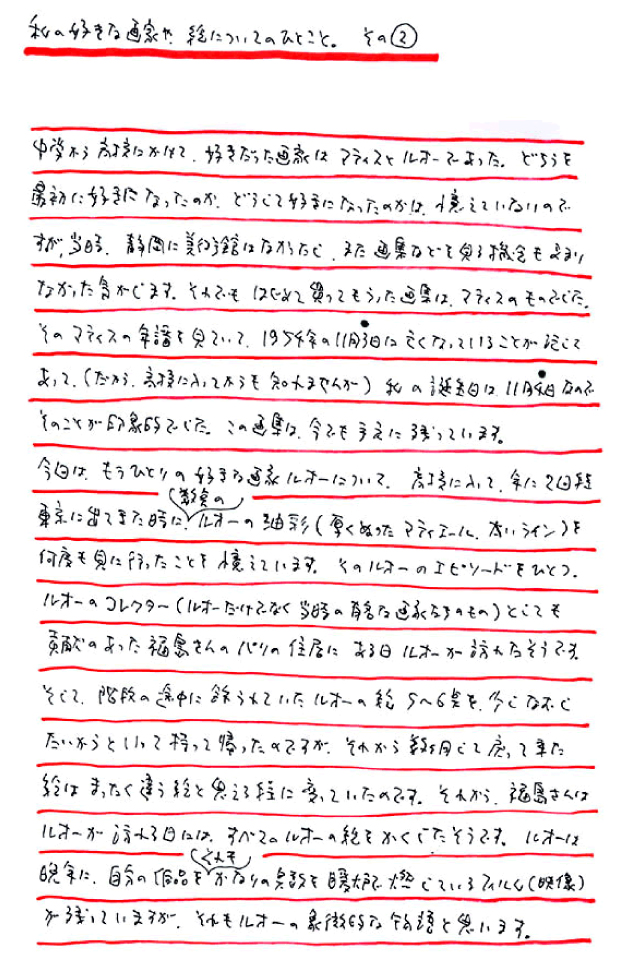 私の好きな画家や、絵についてのひとこと。 その②
中学から高校にかけて、好きだった画家はマティスとルオーであった。どちらを
最初に好きになったのか、どうして好きになったのかは、憶えていないので
すが、当時、静岡に美術館はなかったし、また画集などを見る機会もあまり
なかった気がします。それでもはじめて買ってもらった画集は、マティスのものでした。
そのマティスの年譜を見ていて、1954年の11月3日に亡くなっていることが記して
あって、(だから、高校に入ってからも知れませんが) 私の誕生日は、11月4日なので
そのことが印象的でした。この画集は、今でも手元に残っています。
今回は、もうひとりの好きな画家ルオーについて。高校に入って、年に2回程
東京に出てきた時に、数負のルオーの油彩(厚くぬったマティエール、太いライン)を
何度も見に行ったことを憶えています。そのルオーのエピソードをひとつ。
ルオーのコレクター(ルオーだけでなく当時の有名な画家たちのもの)としても
貢献のあった福島さんのパリの住居にある日ルオーが訪れたそうです。
そして、階段の途中に飾られていたルオーの絵5〜6点を、少しなおし
たいからといって持って帰ったのですが、それから数ヶ月して戻って来た
絵はまったく違う絵と思える程に変っていたのです。それから、福島さんは
ルオーが訪れる日には、すべてのルオーの絵をかくしたそうです。ルオーは
晩年に、自分の作品をそれもかなりの点数を暖炉で燃しているフィルム(映像)
が残っていますが、それもルオーの象徴的な物語と思います。